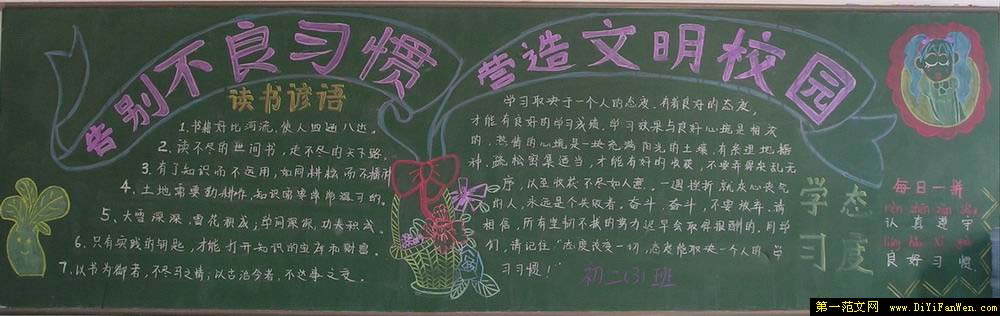 告别不良习惯
营造文明校园
读书谚语
1.书籍好比河流,使人四通八达。
2.读不尽的世间书,走不尽的天下路。
3.有了知识而不运用,如同耕松而不播种
4.土地需要勤耕作,知识需要常常温习的。
5、大雪深深,雪花积成;学问深渊,功夫积成
6.只有实践的钥匙,才能打开知识的宝库和财富。
7.以书为御者,不尽马之情,以古治今者,不达事之变。
学习取决于一个人的态度、有着良好的态度
才能有良好的学习成绩。学习效果与良好心境是相成
的。热情的心境是一块充满阳光的土壤,有条理地播
种,疏松密集适当,才能有好的收获,不要弄得杂乱无
序,以至收获不尽如人意。一遇挫折就灰心丧气
的人,永远是个失败者。奋斗,奋斗,不要放弃。请
相信,所有坚韧不拔的努力迟早会取得报酬的。同学
们,请记住“态度改变一切,态度能取决一个人的学
习习惯!
初二(3)班
学习
态度
每日一讲
rèn zhēn zūn shǒu
认真遵守
liáng hǎo xí guàn
良好习惯
第一范文网 www.DiYiFanWen.com